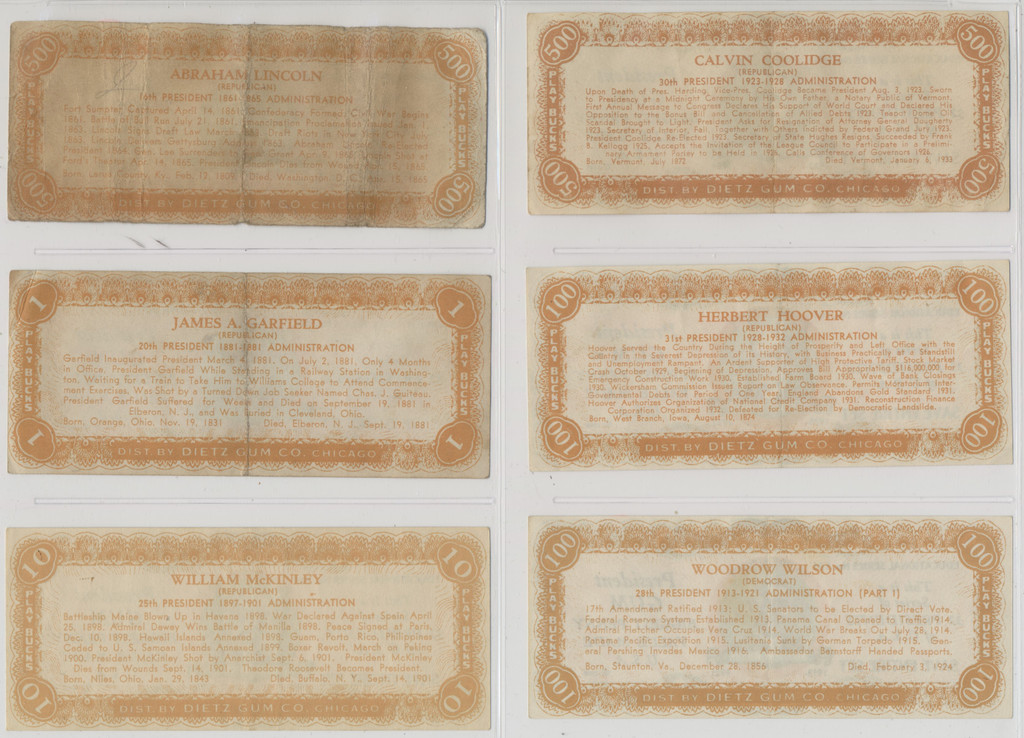 500
500
ABRAHAM LINCOLN
(REPUBLICAN)
16th PRESIDENT 1861-1865 ADMINISTRATION
Fort Sumpter Captured April 14, 1861. Confederacy Formed. Civil War Begin
Bull Run July 21, 1861. Emancipation Proclamation
1863. Lincoln Signs Draft Law March 1863. Draft Riots New York
Born, Ky. Feb. 12, 1809. Died, Washington 15, 1865
PLAY BUCKS
PLAY BUCKS
500
500
DIST. BY DIETZ GUM CO. CHICAGO
500
500
CALVIN COOLIDGE
(REPUBLICAN)
30th PRESIDENT 1923-1928 ADMINISTRATION
Upon Death of Pres. Harding, Vice-Pres. Coolidge Became President Aug. 3, 1923. Sworn
to Presidency at a Midnight Ceremony by His Own Father, a Notary Public of Vermont.
First Annual Message to Congress Declares His Support of World Court and Declared His
Opposition to the Bonus Bill, and Cancellation of Allied Debts 1923. Teapot Dome Oil
Scandal Brought to Light. President Asks for Resignation of Attorney General Daugherty
1923, Secretary of Interior, Fall, Together with Others Indicted by Federal Grand Jury 1923.
President Coolidge Re-Elected 1923. Secretary of State Hughes Resigns. Succeeded by Frank
B. Kellogg 1925. Accepts the Invitation of the League Council to Participate in a Prelimi-
nary Armament Parley to be Held in 1926. Calls Conference of Governors 1926.
Born, Vermont, July 1872 Died, Vermont, January 6, 1933
PLAY BUCKS
PLAY BUCKS
500
500
DIST. BY DIETZ GUM CO. CHICAGO
1
1
JAMES A. GARFIELD
(REPUBLICAN)
20th PRESIDENT 1881-1881 ADMINISTRATION
Garfield Inaugurated President March 4, 1881. On July 2, 1881, Only 4 Months
in Office, President Garfield While Standing in a Railway Station in Washing-
ton, Waiting for a Train to Take Him to Williams College to Attend Commence-
ment Exercises, Was Shot by a Turned Down Job Seeker Named Chas. J. Guiteau.
President Garfield Suffered for Weeks and Died on September 19, 1881 in
Elberon, N. J., and Was Buried in Cleveland, Ohio.
Born, Orange, Ohio, Nov. 19, 1831 Died, Elberon, N. J., Sept. 19, 1881
PLAY BUCKS
PLAY BUCKS
1
1
DIST. BY DIETZ GUM CO. CHICAGO
100
100
HERBERT HOOVER
(REPUBLICAN)
31st PRESIDENT 1928-1932 ADMINISTRATION
Hoover Served the Country During the Height of Prosperity and Left Office with the
Country in the Severest Depression of its History, with Business Practically at a Standstill
and Unemployment Rife. An Ardent Supporter of High Protective Tariff. Stock Market
Crash October 1929. Beginning of Depression. Approves Bill Appropriating $116,000,000 for
Emergency Construction Work 1930. Established Farm Board 1930. Wave of Bank Closings
1930. Wickersham Commission Issues Report on Law Observance. Permits Moratorium Inter-
Governmental Debts for Period of One Year. England Abandons Gold Standard 1931.
Hoover Authorizes Organization of National Credit Company 1931. Reconstruction Finance
Corporation Organized 1932. Defeated for Re-Election by Democratic Landslide.
Born, West Branch, Iowa, August 10, 1874
PLAY BUCKS
PLAY BUCKS
100
100
DIST. BY DIETZ GUM CO. CHICAGO
10
10
WILLIAM McKINLEY
(REPUBLICAN)
25th PRESIDENT 1897-1901 ADMINISTRATION
Battleship Maine Blown Up in Havana 1898. War Declared Against Spain April
25, 1898. Admiral Dewey Wins Battle of Manilla 1898. Peace Signed at Paris,
Dec. 10, 1898. Hawaii Islands Annexed 1898. Guam, Porto Rico, Philippines
Ceded to U. S. Samoan Islands Annexed 1899. Boxer Revolt, March on Peking
1900. President McKinley Shot by Anarchist Sept. 6, 1901. President McKinley
Dies from Wounds Sept. 14, 1901. Theodore Roosevelt Becomes President.
Born, Niles, Ohio, Jan. 29, 1843 Died, Buffalo, N. Y., Sept. 14, 1901
PLAY BUCKS
PLAY BUCKS
10
10
DIST. BY DIETZ GUM CO. CHICAGO
100
100
WOODROW WILSON
(DEMOCRAT)
28th PRESIDENT 1913-1921 ADMINISTRATION (PART 1)
17th Amendment Ratified 1913; U. S. Senators to be Elected by Direct Vote.
Federal Reserve System Established 1913. Panama Canal Opened to Traffic 1914.
Admiral Fletcher Occupies Vera Cruz 1914. World War Breaks Out July 28, 1914.
Panama Pacific Exposition 1915. Lusitania Sunk by German Torpedo 1915. Gen-
eral Pershing Invades Mexico 1916. Ambassador Bernstorff Handed Passports.
Born, Staunton, Va., December 28, 1856 Died, February 3, 1924
PLAY BUCKS
PLAY BUCKS
100
100
DIST. BY DIETZ GUM CO. CHICAGO